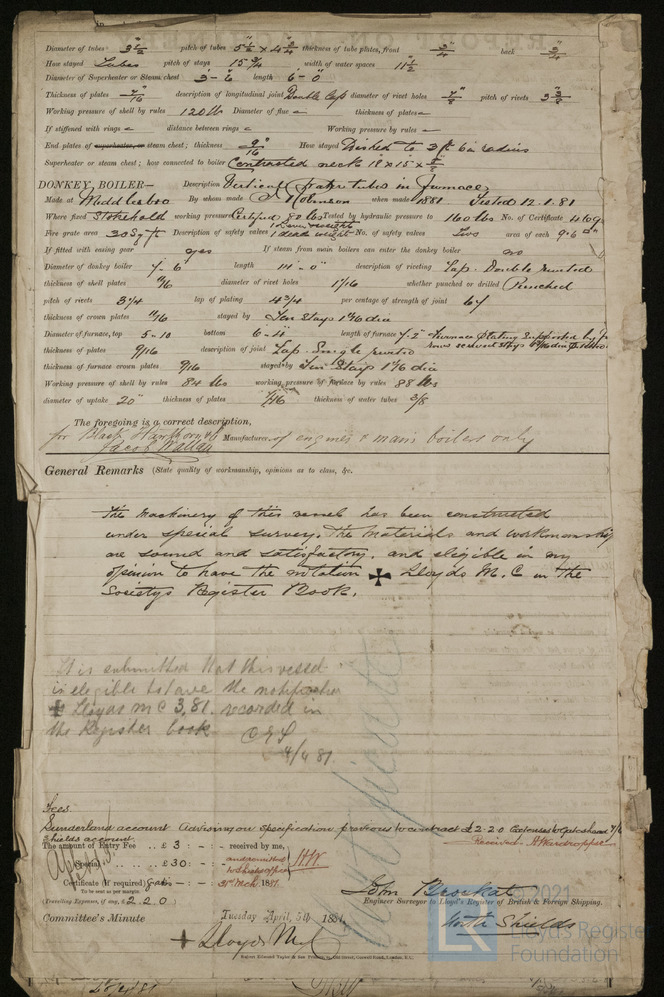 Diameter of tubes 3 1/2" pitch of tubes 5 1/2" x 4 3/4" thickness of tube plates, front 3/4" back 3/4"
How stayed Tubes pitch of stays 15 3/4 width of water spaces 11 1/2"
Diameter of Superheater or Steam chest 3-6" length 6-0"
Thickness of plates 7/16" description of longitudinal joint Double Lap diameter of rivet holes 7/8" pitch of rivets 3 3/8"
Working pressure of shell by rules 120 lb Diameter of flue - thickness of plates -
If stiffened with rings - distance between rings - Working pressure by rules -
End plates of superheater, or steam chest; thickness 9/16" How stayed Dished to 3 ft 6 in radius
Superheater or steam chest; how connected to boiler Contracted neck 18 x 15 x
DONKEY BOILER— Description Vertical, water tubes in furnace
Made at Middlesbro By whom made when made 1881. Tested 12.1.81
Where fixed Stokehold working pressure Certified 80 lbs Tested by hydraulic pressure to 160 lbs No. of Certificate 469
Fire grate area 20 Sq ft Description of safety valves No. of safety valves Two area of each 9.6
If fitted with easing gear yes If steam from main boilers can enter the donkey boiler no
Diameter of donkey boiler 7-6 length 14-0" description of riveting Lap. Double riveted
thickness of shell plates 11/16 diameter of rivet holes 1 1/16 whether punched or drilled Punched
pitch of rivets 3 1/4 lap of plating 4 3/4 per centage of strength of joint 67
thickness of crown plates 11/16 stayed by Ten Stays 1 11/16 dia
Diameter of furnace, top 5-10 bottom 6-4 length of furnace 7-2"
thickness of plates 9/16 description of joint Lap. Single riveted
thickness of furnace crown plates 9/16 stayed by Ten Stays 1 11/16 dia
Working pressure of shell by rules 84 lbs working pressure of furnace by rules 88 lbs
diameter of uptake 20" thickness of plates 7/16 thickness of water tubes 3/8
The foregoing is a correct description,
for Black Hawthorn & Co
Jacob Wallau Manufacturer. of engines & main boilers only
General Remarks (State quality of workmanship, opinions as to class, &c.
The Machinery of this vessel has been constructed
under special survey. The materials and workmanship
are sound and satisfactory, and eligible in my
opinion to have the notation ✠ Lloyds M.C in the
Societys Register Book.
It is submitted that this vessel
is eligible to have the notification
✠ Lloyds M C 3,81. recorded in
the Register book
4/4 81
Fees
Sunderland account Advising on specification previous to contract £2-2-0 Expenses to Gateshead 4/6
Shields account Received. A Wardropper
The amount of Entry Fee .. £ 3 : - : - received by me,
Special .. .. £30 : - : -
Certificate (if required) : - : - 31st Mch 1881
To be sent as per margin
(Travelling Expenses, if any, £ 2.2.0)
John Brockat
Engineer Surveyor to Lloyd's Register of British & Foreign Shipping.
North Shields
Committee's Minute Tuesday April, 5th 1881
✠ Lloyds M.C
© 2021
Lloyd's Register
Foundation